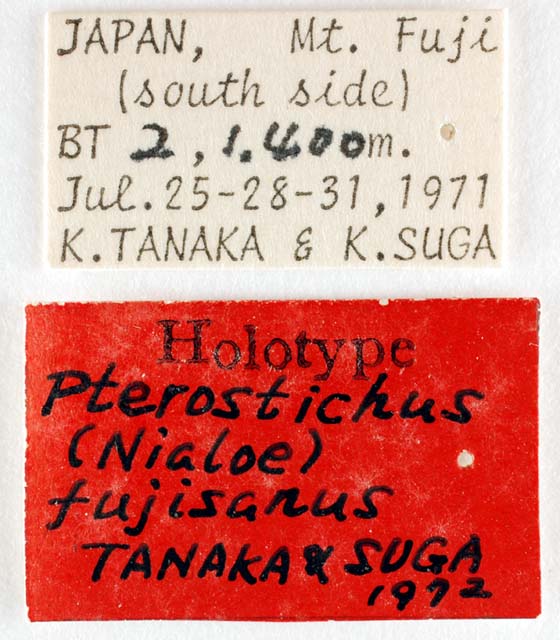 JAPAN, Mt. Fuji
(south side)
BT 2, 1.400m.
Jul. 25-28-31, 1971
K. TANAKA & K. SUGA
Holotype
Pterostichus
(Nialoe)
fujisanus
TANAKA & SUGA
1972